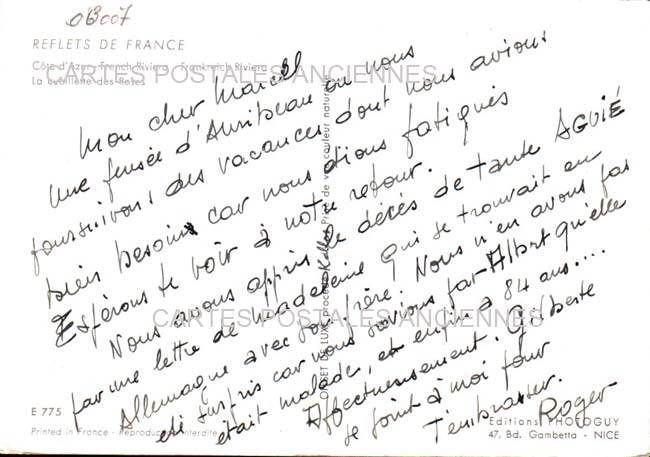 06007
REFLETS DE FRANCE
Côte d'Azur - French Riviera - Frankreich Riviera
La cueillette des Roses
CARTES POSTALES ANCIENNES
Mon cher Marcel
Une pensée d'Auribeau ou nous
poursuivons des vacances dont nous avions
bien besoin car nous étions fatigués
Espérons te voir à notre retour.
Nous avons appris le décès de tante AGUIÉ
par une lettre de Madeleine qui se trouvait en
Allemagne avec son frère. Nous n'en avons pas
été surpris car nous savions par Albert qu'elle
était malade, et enfin à 84 ans....
Affectueusement. Gilberte
se joint à moi pour
t'embrasser.
Roger
CARTES POSTALES ANCIENNES
E 775
Printed in France - Reproduction interdite
Editions PHOTOGUY
47, Bd. Gambetta - NICE